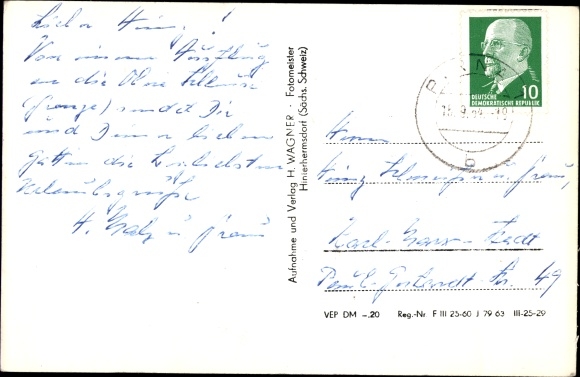 Lieber Heinz!
Von einem Ausflug
an die Obere Schleuse
(Grenze) sendet Dir
und Deiner lieben
Gattin die herzlichsten
Urlaubsgrüße
H. u. Frau
Aufnahme und Verlag H. WAGNER · Fotomeister
Hinterhermsdorf (Sächs. Schweiz)
10
DEUTSCHE
DEMOKRATISCHE REPUBLIK
Herrn
Heinz u. Frau,
Karl-Marx-Stadt
Str. 49
VEP DM –.20 Reg.-Nr. F III 25-60 J 79 63 III-25-29